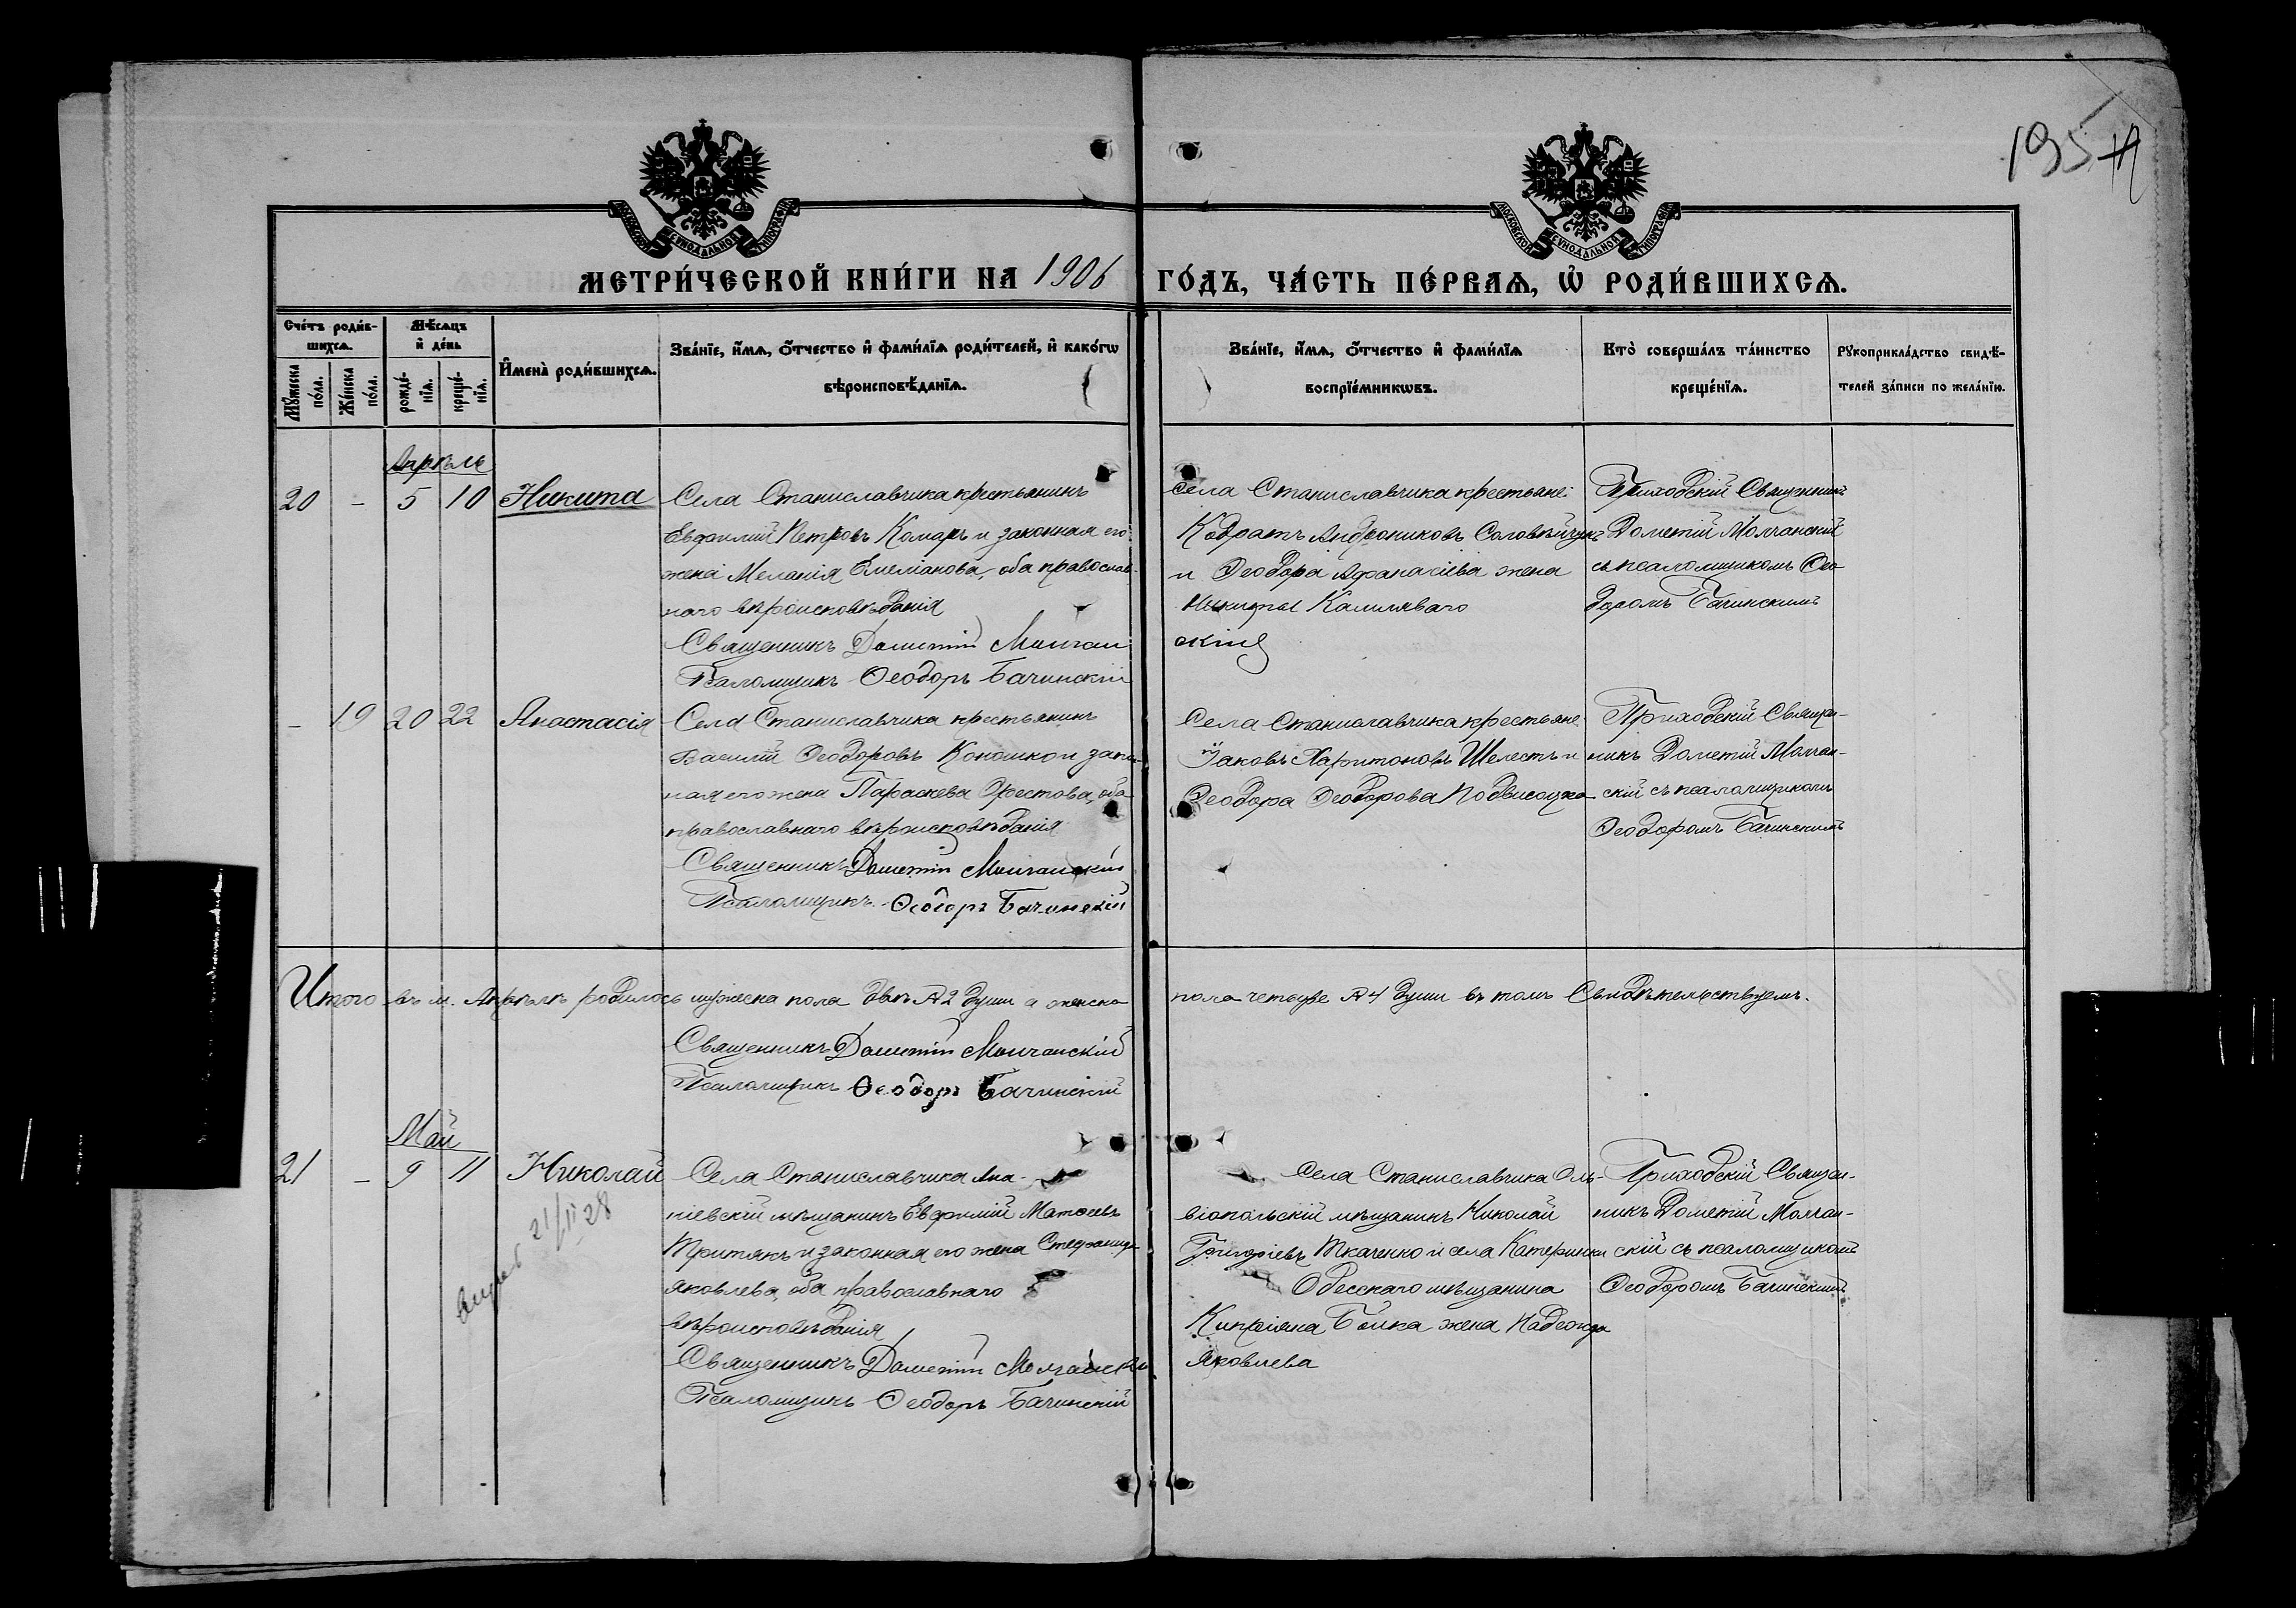 195
МЕТРИ́ЧЕСКОЙ КНИ́ГИ НА 1906 ГО́ДЪ, ЧА́СТЬ ПЕ́РВАѦ, Ѡ҆ РОДИ́ВШИХСѦ.
Сче́тъ роди́в-
шихсѧ.
Мѣ́сѧцъ
и҆ де́нь
Мꙋ́жеска по́ла.
Же́нска по́ла.
рожде́-
нїѧ.
креще́-
нїѧ.
И҆мена̀ роди́вшихсѧ.
Зва́нїе, и҆́мѧ, ѻ҆́тчество и҆ фами́лїѧ роди́телей, и҆ како́гѡ
вѣроисповѣ́данїѧ.
Зва́нїе, и҆́мѧ, ѻ҆́тчество и҆ фами́лїѧ
воспрїе́мникѡвъ.
Кто̀ соверша́лъ та́инство
креще́нїѧ.
Рꙋкоприкла́дство свидѣ́-
телей за́писи по жела́нїю.
Апрѣль
20 - 5 10 Никита
Села Станиславчика крестьянинъ
Евфимій Петровъ Комаръ и законная его
жена Меланія Емеліанова, оба православ-
наго вѣроисповѣданія
Священникъ Дометій Молчан
Псаломщикъ Ѳеодоръ Бачинскій
Села Станиславчика крестьяне:
Кодратъ Андрониковъ Соловейчукъ
и Ѳеодора Афанасіева жена
Никиты Калиляваго
скій
Приходскій Священникъ
Дометій Молчанскій
съ псаломщикомъ Ѳео-
доромъ Бачинскимъ
- 19 20 22 Анастасія
Села Станиславчика крестьянинъ
Василій Ѳеодоровъ Кономко и закон-
ная его жена Параскева Орестова, оба
православнаго вѣроисповѣданія
Священникъ Дометій Молчанскій
Псаломщикъ Ѳеодоръ Бачинскій
Села Станиславчика крестьяне
Іаковъ Харитоновъ Шелестъ и
Ѳеодора Ѳеодорова Подвисоцка
Приходскій Священ-
никъ Дометій Молчан-
скій съ псаломщикомъ
Ѳеодоромъ Бачинскимъ
Итого въ м. Апрѣлѣ родилось мужеска пола двѣ № 2 души а женска пола четыре № 4 души въ томъ Свидѣтельствуемъ.
Священникъ Дометій Молчанскій
Псаломщикъ Ѳеодоръ Бачинскій
Май
21 - 9 11 Николай
21/II 28
Села Станиславчика Ана-
ніевскій мѣщанинъ Евфимій Матѳіевъ
Притякъ и законная его жена Стефанида
Яковлева, оба православнаго
вѣроисповѣданія
Священникъ Дометій Молчанскій
Псаломщикъ Ѳеодоръ Бачинскій
Села Станиславчика Оль-
віопольскій мѣщанинъ Николай
Григоріевъ Ткаченко и села Катеринки
Одесскаго мѣщанина
Кипріяна Бойка жена Надежда
Яковлева
Приходскій Священ-
никъ Дометій Молчан-
скій съ псаломщикомъ
Ѳеодоромъ Бачинскимъ